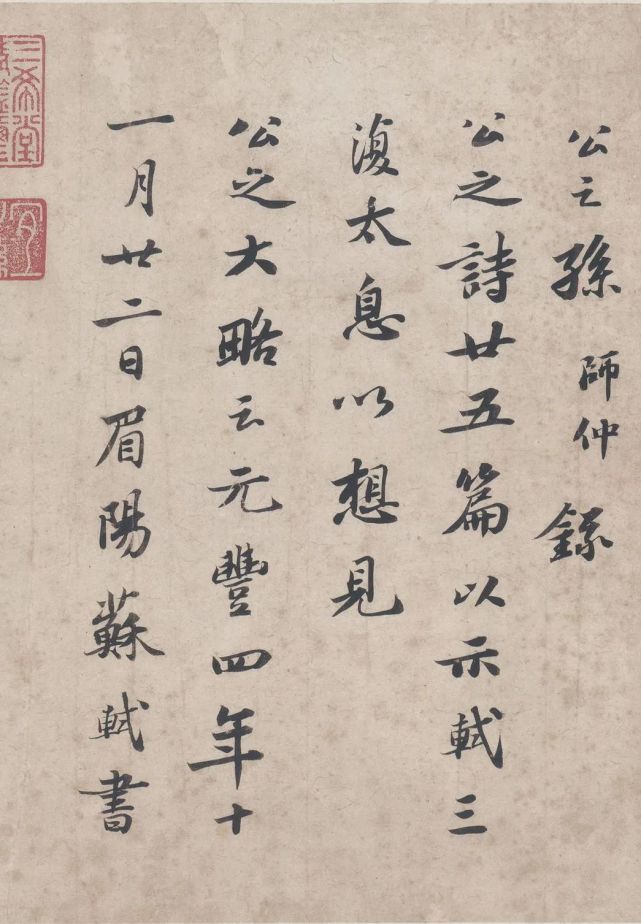 公之孫師仲錄
公之詩廿五篇以示軾三
復太息以想見
公之大略云元豐四年十
一月廿二日眉陽蘇軾書
三希堂